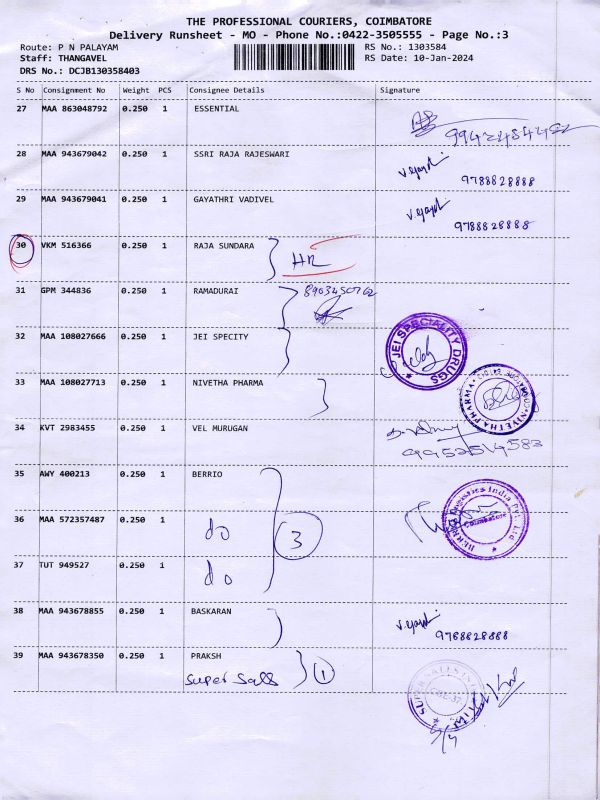 THE PROFESSIONAL COURIERS, COIMBATORE
Delivery Runsheet - MO - Phone No.:0422-3505555 - Page No.:3
Route: P N PALAYAM RS No.: 1303584
Staff: THANGAVEL RS Date: 10-Jan-2024
DRS No.: DCJB130358403
S No Consignment No Weight PCS Consignee Details Signature
27 MAA 863048792 0.250 1 ESSENTIAL
28 MAA 943679042 0.250 1 SSRI RAJA RAJESWARI
9788828888
29 MAA 943679041 0.250 1 GAYATHRI VADIVEL
9788828888
30 VKM 516366 0.250 1 RAJA SUNDARA
HR
31 GPM 344836 0.250 1 RAMADURAI
32 MAA 108027666 0.250 1 JEI SPECITY
JEI SPECIALITY DRUGS
33 MAA 108027713 0.250 1 NIVETHA PHARMA
NIVETHA PHARMA
34 KVT 2983455 0.250 1 VEL MURUGAN
9952514583
35 AWY 400213 0.250 1 BERRIO
36 MAA 572357487 0.250 1 do 3
India Pvt. Ltd
Coimbatore
37 TUT 949527 0.250 1 do
38 MAA 943678855 0.250 1 BASKARAN
9788828888
39 MAA 943678350 0.250 1 PRAKSH
super sals 1